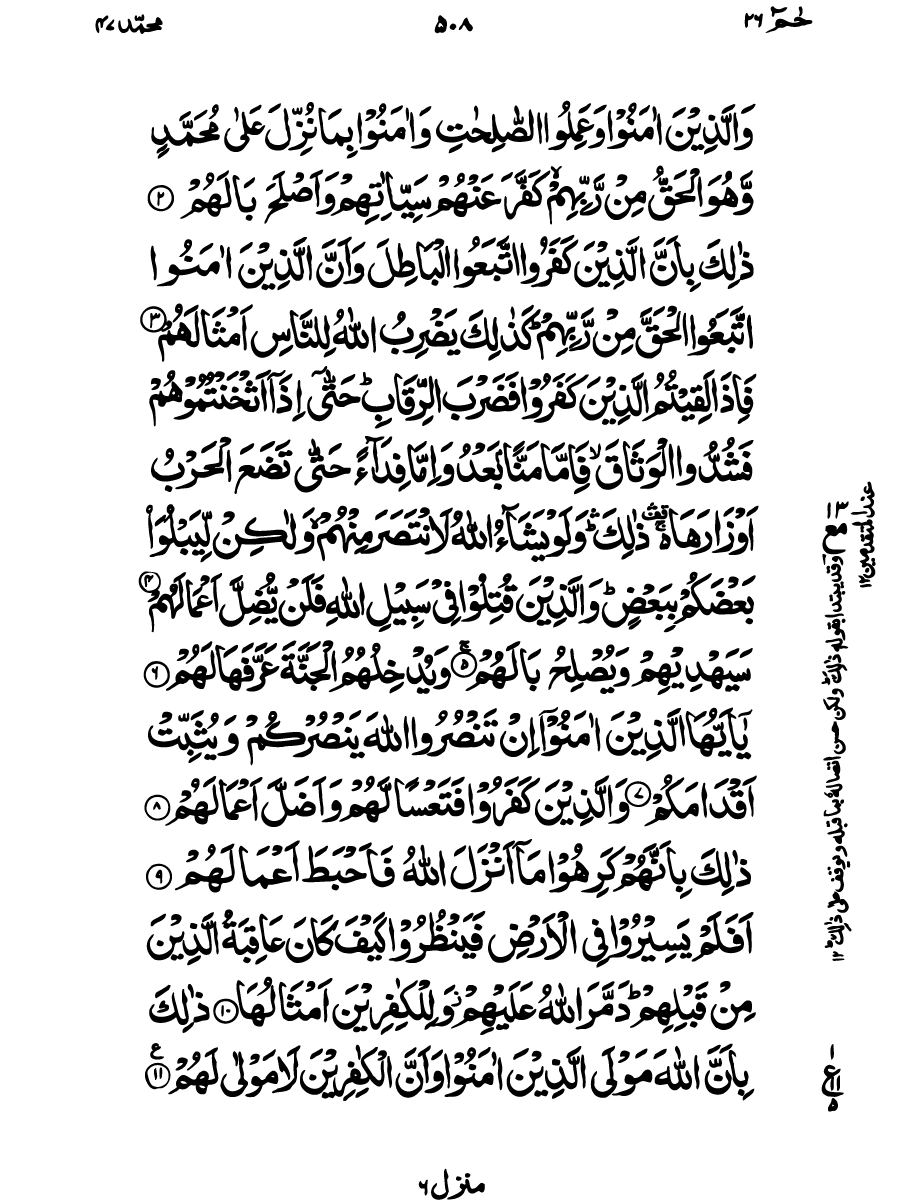 حٰمٓ ۲۶
۵۰۸
محمّد ۴۷
وَالَّذِیْنَ اٰمَنُوْا وَعَمِلُوا الصّٰلِحٰتِ وَاٰمَنُوْا بِمَا نُزِّلَ عَلٰی مُحَمَّدٍ
وَّهُوَ الْحَقُّ مِنْ رَّبِّهِمْ ۙ كَفَّرَ عَنْهُمْ سَیِّاٰتِهِمْ وَاَصْلَحَ بَالَهُمْ ﴿۲﴾
ذٰلِكَ بِاَنَّ الَّذِیْنَ كَفَرُوا اتَّبَعُوا الْبَاطِلَ وَاَنَّ الَّذِیْنَ اٰمَنُوا
اتَّبَعُوا الْحَقَّ مِنْ رَّبِّهِمْ ؕ كَذٰلِكَ یَضْرِبُ اللّٰهُ لِلنَّاسِ اَمْثَالَهُمْ ﴿۳﴾
فَاِذَا لَقِیْتُمُ الَّذِیْنَ كَفَرُوْا فَضَرْبَ الرِّقَابِ ؕ حَتّٰۤی اِذَاۤ اَثْخَنْتُمُوْهُمْ
فَشُدُّوا الْوَثَاقَ ۙ فَاِمَّا مَنًّۢا بَعْدُ وَاِمَّا فِدَآءً حَتّٰی تَضَعَ الْحَرْبُ
اَوْزَارَهَا ۛ۬ ذٰلِكَ ۛؕ وَلَوْ یَشَآءُ اللّٰهُ لَانْتَصَرَ مِنْهُمْ ۙ وَلٰكِنْ لِّیَبْلُوَا۠
بَعْضَكُمْ بِبَعْضٍ ؕ وَالَّذِیْنَ قُتِلُوْا فِیْ سَبِیْلِ اللّٰهِ فَلَنْ یُّضِلَّ اَعْمَالَهُمْ ﴿۴﴾
سَیَهْدِیْهِمْ وَیُصْلِحُ بَالَهُمْ ۚ﴿۵﴾ وَیُدْخِلُهُمُ الْجَنَّةَ عَرَّفَهَا لَهُمْ ﴿۶﴾
یٰۤاَیُّهَا الَّذِیْنَ اٰمَنُوْۤا اِنْ تَنْصُرُوا اللّٰهَ یَنْصُرْكُمْ وَیُثَبِّتْ
اَقْدَامَكُمْ ﴿۷﴾ وَالَّذِیْنَ كَفَرُوْا فَتَعْسًا لَّهُمْ وَاَضَلَّ اَعْمَالَهُمْ ﴿۸﴾
ذٰلِكَ بِاَنَّهُمْ كَرِهُوْا مَاۤ اَنْزَلَ اللّٰهُ فَاَحْبَطَ اَعْمَالَهُمْ ﴿۹﴾
اَفَلَمْ یَسِیْرُوْا فِی الْاَرْضِ فَیَنْظُرُوْا كَیْفَ كَانَ عَاقِبَةُ الَّذِیْنَ
مِنْ قَبْلِهِمْ ؕ دَمَّرَ اللّٰهُ عَلَیْهِمْ ؗ وَلِلْكٰفِرِیْنَ اَمْثَالُهَا ﴿۱۰﴾ ذٰلِكَ
بِاَنَّ اللّٰهَ مَوْلَی الَّذِیْنَ اٰمَنُوْا وَاَنَّ الْكٰفِرِیْنَ لَا مَوْلٰی لَهُمْ ﴿۱۱﴾ ع
عند المتقدمین ۱۲
وقد یبتدا بقوله ذٰلك ولكن حسن اتصاله بما قبله ویوقف علی ذٰلك ۱۲
ع ۵
منزل ۶